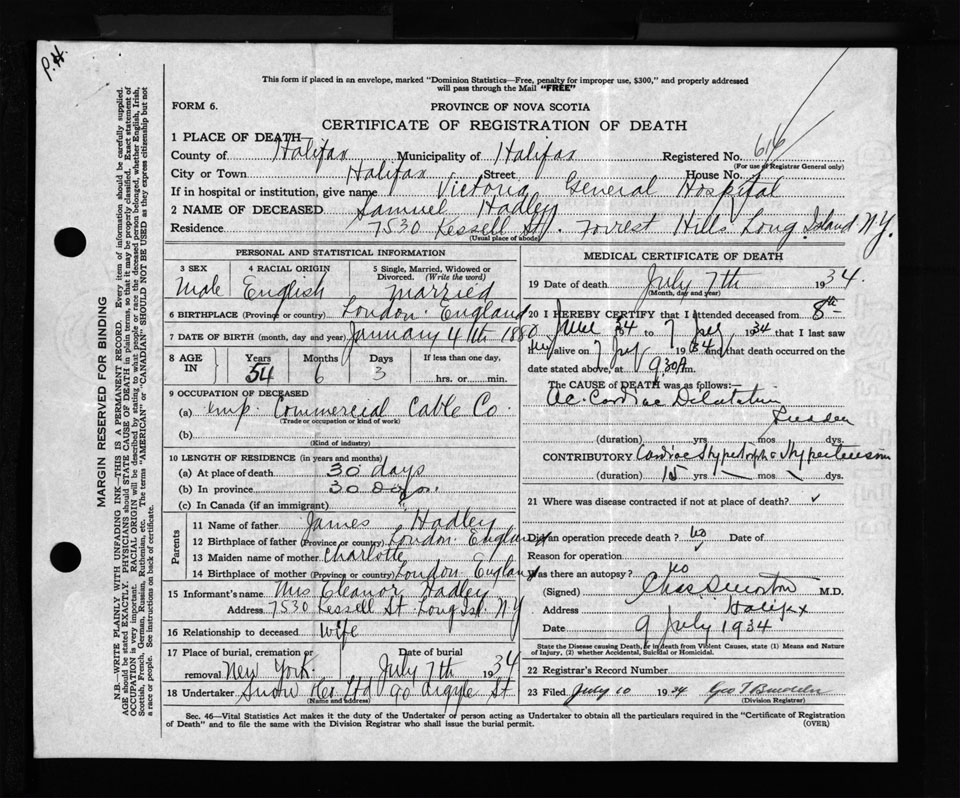 P.H.
This form if placed in an envelope, marked "Dominion Statistics—Free, penalty for improper use, $300," and properly addressed
will pass through the Mail "FREE"
FORM 6.
PROVINCE OF NOVA SCOTIA
CERTIFICATE OF REGISTRATION OF DEATH
1 PLACE OF DEATH—
County of Halifax Municipality of Halifax Registered No. 616
(For use of Registrar General only)
City or Town Halifax Street House No.
If in hospital or institution, give name Victoria General Hospital
2 NAME OF DECEASED Samuel Hadley
Residence 7530 Kessell St. Forrest Hills Long Island N.Y.
(Usual place of abode)
PERSONAL AND STATISTICAL INFORMATION
3 SEX 4 RACIAL ORIGIN 5 Single, Married, Widowed or
Divorced. (Write the word)
Male English Married
6 BIRTHPLACE (Province or country) London England
7 DATE OF BIRTH (month, day and year) January 4th 1880
8 AGE IN Years Months Days If less than one day,
54 6 3 hrs. or min.
9 OCCUPATION OF DECEASED
(a) emp. Commercial Cable Co.
(Trade or occupation or kind of work)
(b)
(Kind of industry)
10 LENGTH OF RESIDENCE (in years and months)
(a) At place of death 30 days
(b) In province 30 Days
(c) In Canada (if an immigrant) "
Parents
11 Name of father James Hadley
12 Birthplace of father (Province or country) London England
13 Maiden name of mother Charlotte
14 Birthplace of mother (Province or country) London England
15 Informant's name Mrs Eleanor Hadley
Address 7530 Kessell St. Long Isl. N.Y
16 Relationship to deceased Wife
17 Place of burial, cremation or Date of burial
removal New York. July 7th 1934
18 Undertaker Snow &Co Ltd 90 Argyle St
(Name and address)
MEDICAL CERTIFICATE OF DEATH
19 Date of death July 7th 1934.
(Month, day and year)
20 I HEREBY CERTIFY that I attended deceased from 8th
June 1934 to 7 July 1934 that I last saw
h alive on 7 July 1934 and that death occurred on the
date stated above, at 9.30 A m.
The CAUSE OF DEATH was as follows:
Ac. Cardiac Dilatation
Sudden
(duration) yrs. mos. dys.
CONTRIBUTORY Cardiac Hypertrophy & Hypertension
(duration) 15 yrs. mos. dys.
21 Where was disease contracted if not at place of death?
Did an operation precede death? no Date of
Reason for operation
Was there an autopsy? no
(Signed) Chas M.D.
Address Halifax
Date 9 July 1934
State the Disease causing Death, or in death from Violent Causes, state (1) Means and Nature
of Injury, (2) whether Accidental, Suicidal or Homicidal.
22 Registrar's Record Number
23 Filed July 10 1934 Geo T
(Division Registrar)
Sec. 46—Vital Statistics Act makes it the duty of the Undertaker or person acting as Undertaker to obtain all the particulars required in the "Certificate of Registration
of Death" and to file the same with the Division Registrar who shall issue the burial permit. (OVER)
MARGIN RESERVED FOR BINDING
N.B.—WRITE PLAINLY WITH UNFADING INK—THIS IS A PERMANENT RECORD. Every item of information should be carefully supplied.
AGE should be stated EXACTLY. PHYSICIANS should STATE CAUSE OF DEATH in plain terms, so that it may be properly classified. Exact statement of
OCCUPATION is very important. RACIAL ORIGIN will be described by stating to what people or race the deceased person belonged, whether English, Irish,
Scottish, French, German, Russian, Ruthenian, etc. The terms "AMERICAN" or "CANADIAN" SHOULD NOT BE USED as they express citizenship but not
a race or people. See instructions on back of certificate.